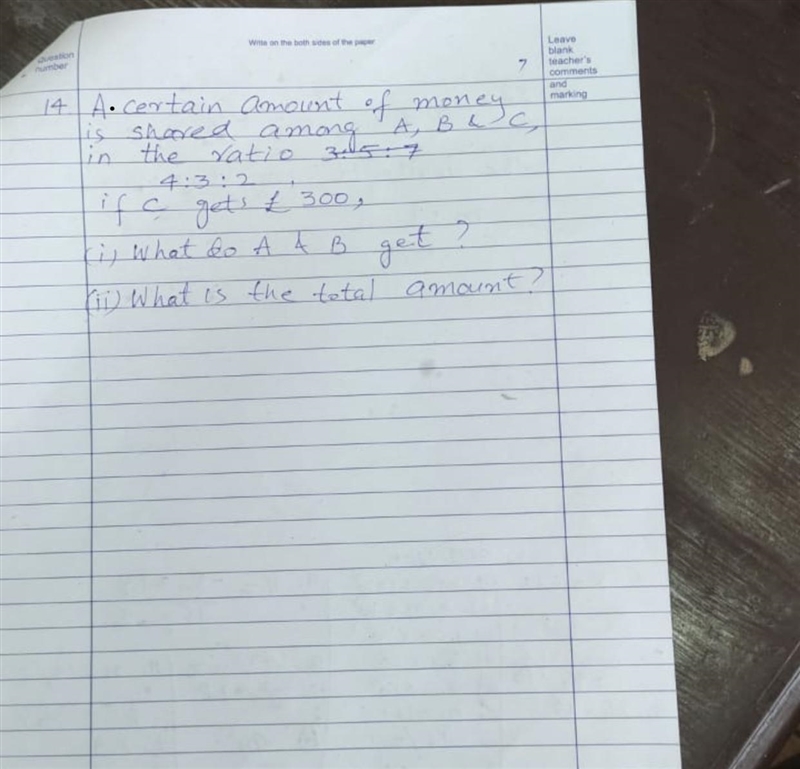 Write on the both sides of the paper
Question
number
Leave
blank
teacher's
comments
and
marking
7
14 A. certain amount of money
is shared among A, B & C,
in the ratio 3:5:7
4:3:2
if C gets £ 300,
(i) What do A & B get?
(ii) What is the total amount?